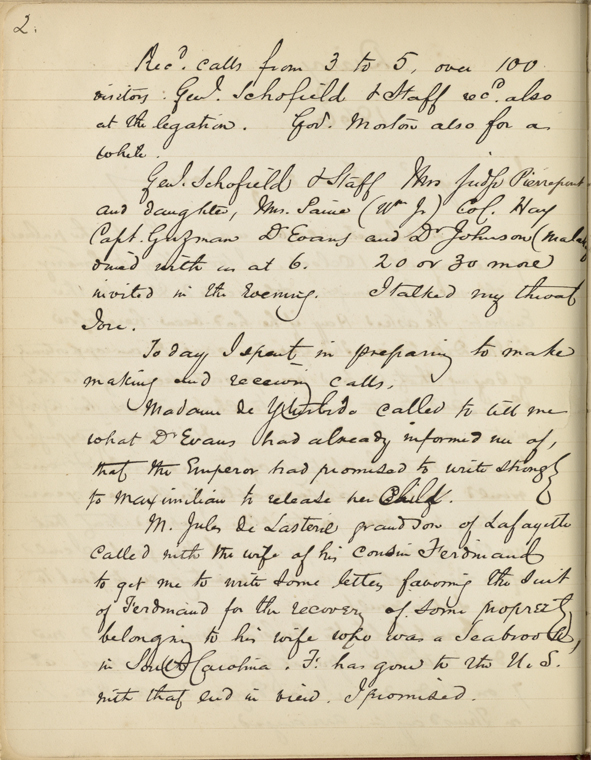 2.
Rec'd. calls from 3 to 5, over 100
visitors. Genl. Schofield & Staff rec'd. also
at the legation. Gov. Morton also for a
while.
Genl. Schofield & Staff Mrs Judge Pierrepont
and daughter, Mrs. Paine (Wm Jr) Col. Hay
Capt. Guzman Dr Evans and Dr Johnson (
dined with us at 6. 20 or 30 more
invited in the Evening. I talked my throat
Sore.
To day I spent in preparing to make
making and receiving calls.
Madame de Yturbide called to tell me
what Dr Evans had already informed me of,
that the Emperor had promised to write strongly
to Maximilian to release her child.
M. Jules de Lasterie grand son of Lafayette
called with the wife of his cousin Ferdinand
to get me to write some letter favoring the suit
of Ferdinand for the recovery of some property
belonging to his wife who was a Seabrook,
in South Carolina. F. has gone to the U.S.
with that end in view. I promised.